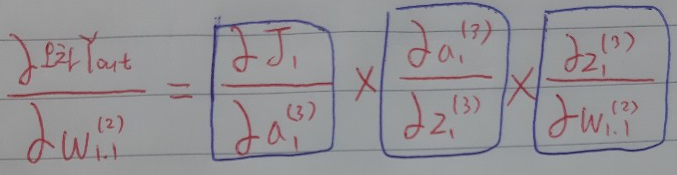 ∂오차Yout / ∂w₁.₁⁽²⁾ = ∂J₁ / ∂a₁⁽³⁾ × ∂a₁⁽³⁾ / ∂z₁⁽³⁾ × ∂z₁⁽³⁾ / ∂w₁.₁⁽²⁾